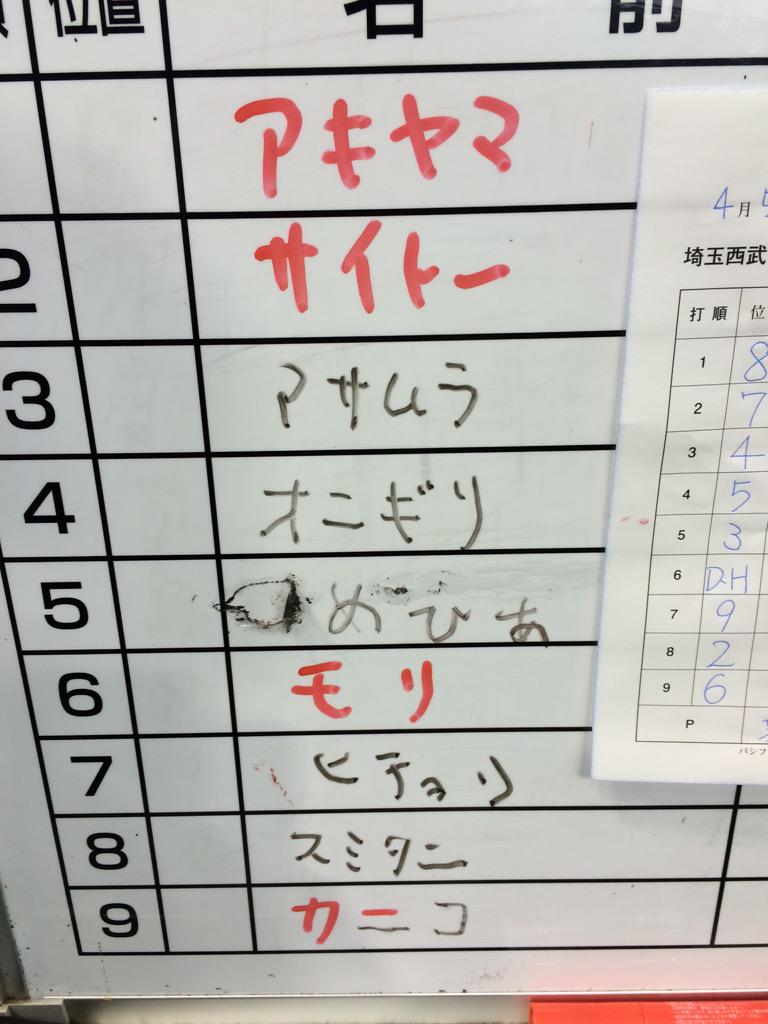 位置 名前
アキヤマ
2 サイトー
3 アサムラ
4 オニギリ
5 めひあ
6 モリ
7 ヒチョリ
8 スミタニ
9 カニコ
4月5
埼玉西武
打順 位
1 8
2 7
3 4
4 5
5 3
6 D.H
7 9
8 2
9 6
P
パシフ